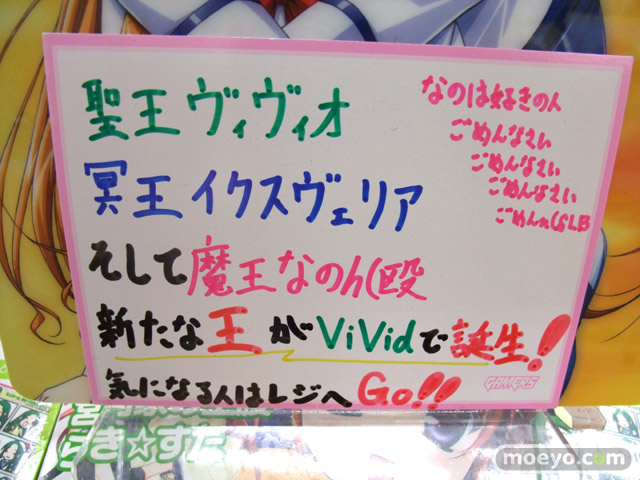 聖王ヴィヴィオ
冥王イクスヴェリア
そして魔王なのh(殴
新たな王がViVidで誕生!
気になる人はレジへGo!!
なのは好きの人
ごめんなさい
ごめんなさい
ごめんなさい
ごめんn(SLB
GAMERS
き☆すた
moeyo.com